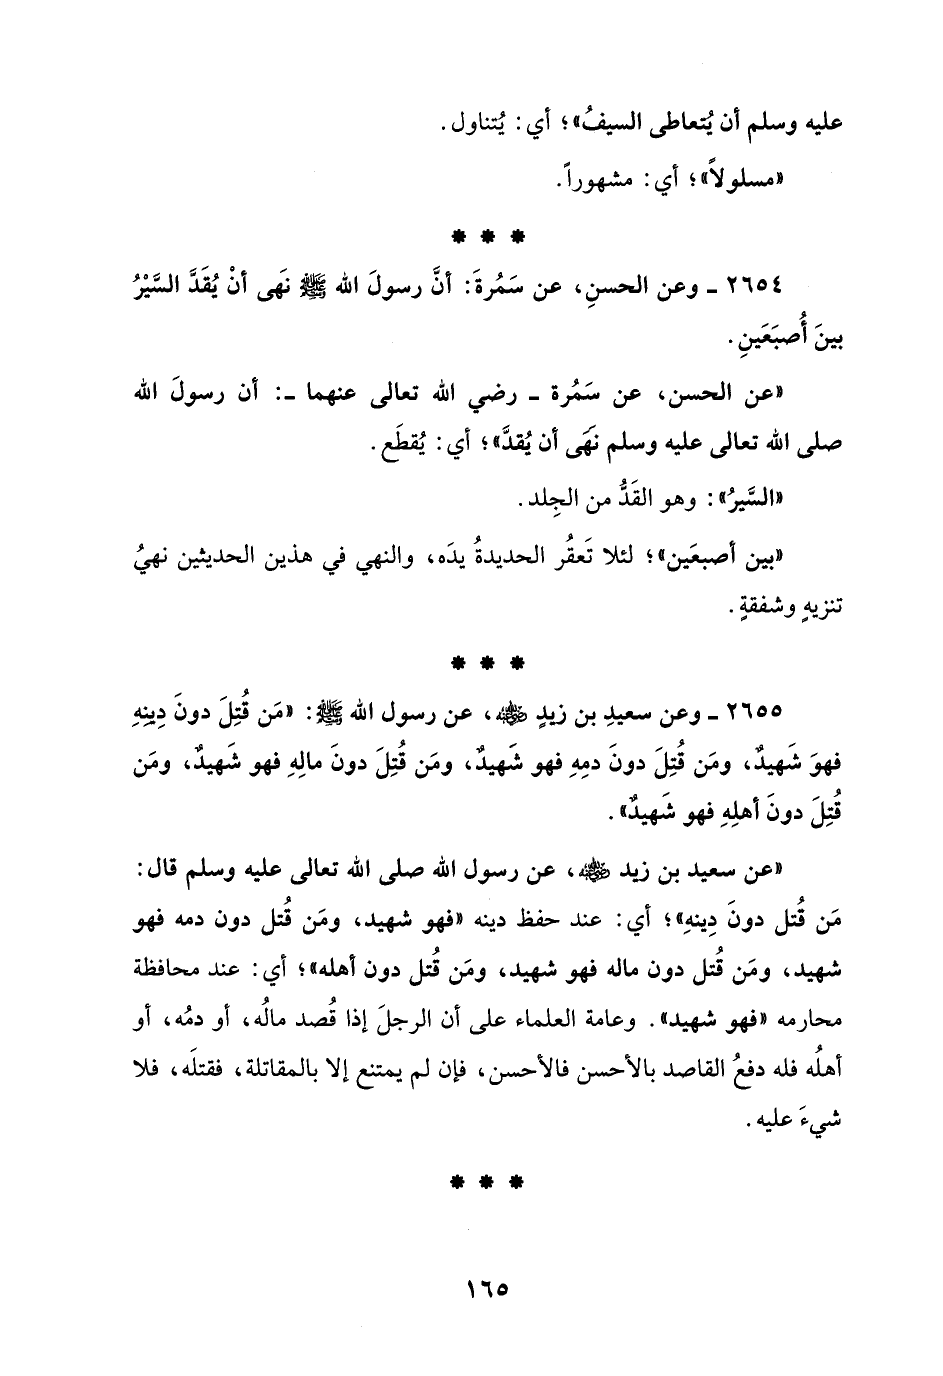 عليه وسلم أن يُتعاطى السيفُ»؛ أي: يُتناول.
«مسلولاً»؛ أي: مشهوراً.
* * *
٢٦٥٤ ـ وعن الحسنِ، عن سَمُرةَ: أنَّ رسولَ الله ﷺ نَهى أنْ يُقَدَّ السَّيْرُ
بينَ أُصبَعَينِ.
«عن الحسن، عن سَمُرة ـ رضي الله تعالى عنهما ـ: أن رسولَ الله
صلى الله تعالى عليه وسلم نَهَى أن يُقدَّ»؛ أي: يُقطَع.
«السَّيرُ»: وهو القَدُّ من الجِلد.
«بين أصبعَين»؛ لئلا تَعقُر الحديدةُ يدَه، والنهي في هذين الحديثين نهيُ
تنزيهٍ وشفقةٍ.
* * *
٢٦٥٥ ـ وعن سعيدِ بن زيدٍ ﵁، عن رسول الله ﷺ: «مَن قُتِلَ دونَ دِينِهِ
فهوَ شَهيدٌ، ومَن قُتِلَ دونَ دمِهِ فهو شَهيدٌ، ومَن قُتِلَ دونَ مالِهِ فهو شَهيدٌ، ومَن
قُتِلَ دونَ أهلِهِ فهو شَهيدٌ».
«عن سعيد بن زيد ﵁، عن رسول الله صلى الله تعالى عليه وسلم قال:
مَن قُتل دونَ دِينهِ»؛ أي: عند حفظ دينه «فهو شهيد، ومَن قُتل دون دمه فهو
شهيد، ومَن قُتل دون ماله فهو شهيد، ومَن قُتل دون أهله»؛ أي: عند محافظة
محارمه «فهو شهيد». وعامة العلماء على أن الرجلَ إذا قُصد مالُه، أو دمُه، أو
أهلُه فله دفعُ القاصد بالأحسن فالأحسن، فإن لم يمتنع إلا بالمقاتلة، فقتلَه، فلا
شيءَ عليه.
* * *
١٦٥